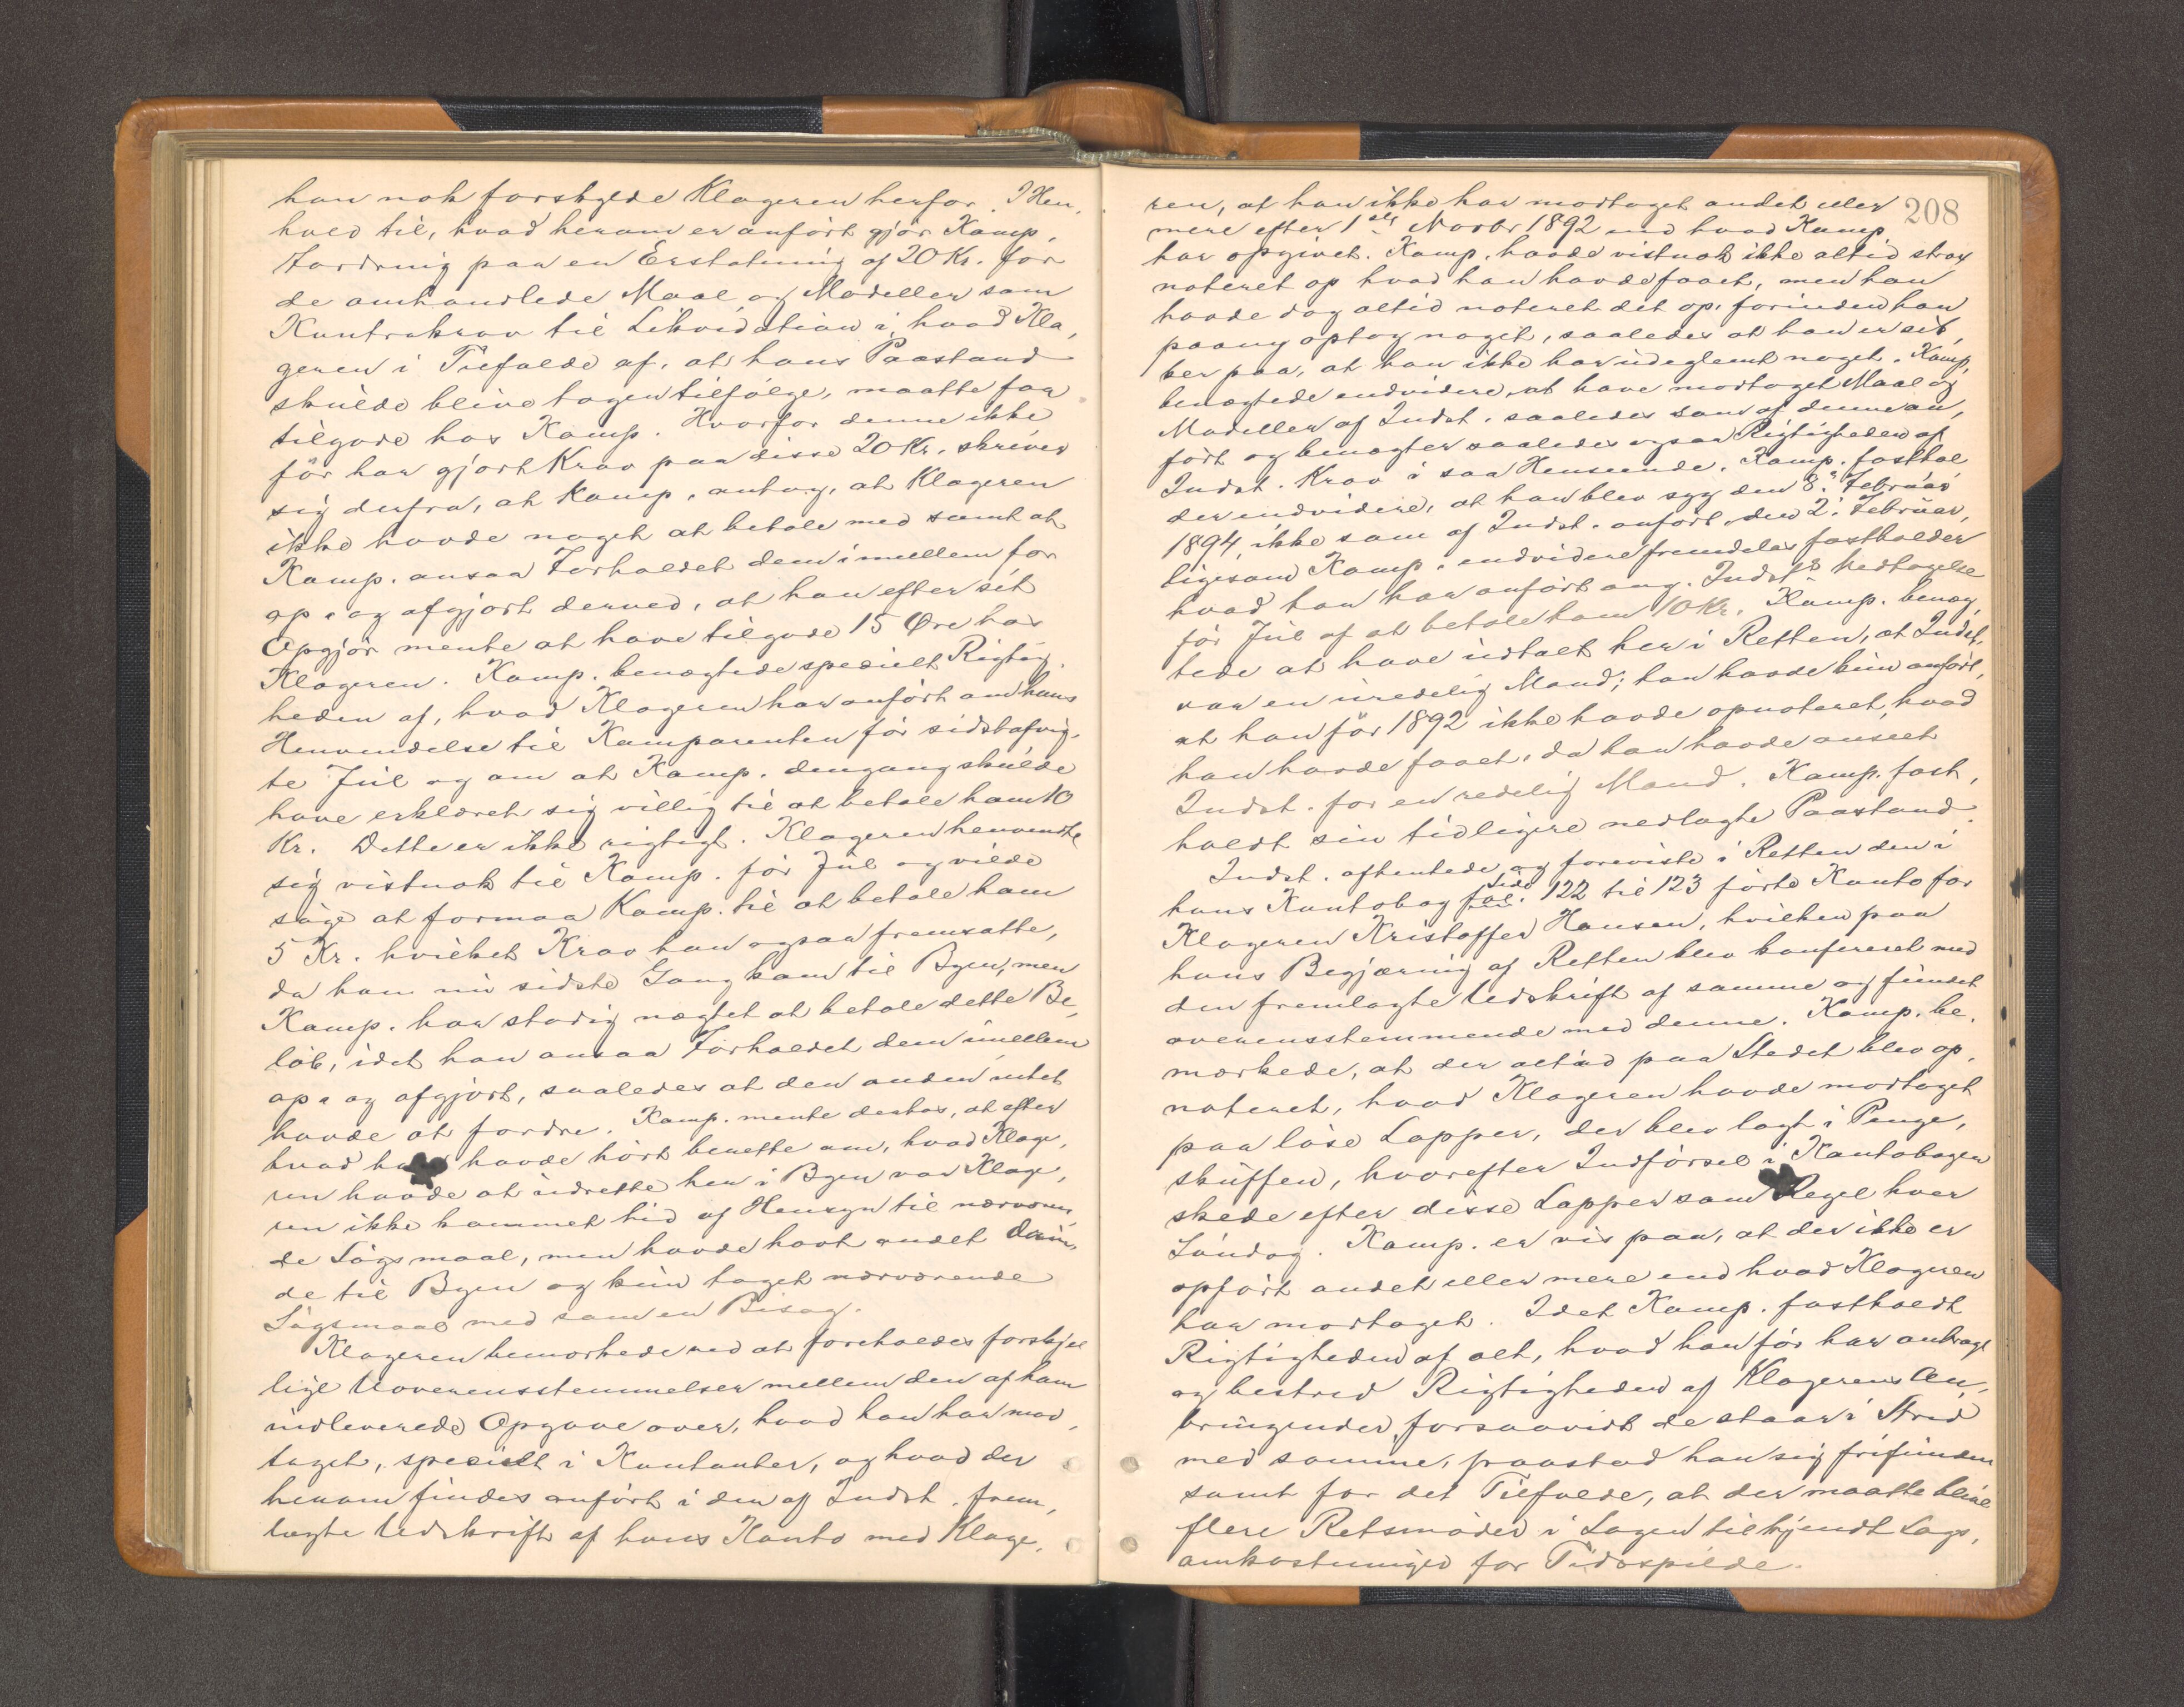 han nok forskylde Klageren herfor. I Hen,
hold til, hvad herom er anført gjør Kamp.
Fordring paa en Erstatning af 20 Kr. for
de omhandlede Maal og Modeller som
Kontrakrav til Likvidation i, hvad Kla,
geren i Tilfælde af, at hans Paastand
skulde blive tagen tilfølge, maatte faa
tilgode hos Kamp. Hvorfor denne ikke
før har gjort Krav paa disse 20 Kr. skriver
sig derfra, at Kamp. antog, at Klageren
ikke havde noget at betale med samt at
Kamp. ansaa Forholdet dem imellem for
op- og afgjort derved, at han efter sit
Opgjør mente at have tilgode 15 Øre hos
Klageren. Kamp. benægtede specielt Rigtig,
heden af, hvad Klageren har anført om hans
Henvendelse til Komparenten før sidstafvig,
te Jul og om at Kamp. dengang skulde
have erklæret sig villig til at betale ham 10
Kr. Dette er ikke rigtigt. Klageren henvendte
sig vistnok til Kamp. før Jul og vilde
søge at formaa Kamp. til at betale ham
5 Kr. hvilket Krav han ogsaa fremsatte,
da han nu sidste Gang kom til Byen, men
Kamp. har stadig nægtet at betale dette Be,
løb, idet han ansaa Forholdet dem imellem
op- og afgjort, saaledes at den anden intet
havde at fordre. Kamp. mente derhos, at efter
hvad han havde hørt berette om, hvad Klage,
ren havde at udrette her i Byen var Klage,
ren ikke kommet hid af Hensyn til nærværen,
de Søgsmaal, men havde havt andet Ærin,
de til Byen og kun taget nærværende
Søgsmaal med som en Bisag.
Klageren bemærkede ved at foreholdes forskjel
lige Uoverensstemmelser mellem den af ham
indleverede Opgave over, hvad han har mod,
taget, specielt i Kontanter, og hvad der
herom findes anført i den af Indst. frem,
lagte Udskrift af hans Konto med Klage,
208
ren, at han ikke har modtaget andet eller
mere efter 1ste Novbr 1892 end hvad Kamp.
har opgivet. Kamp. havde vistnok ikke altid strax
noteret op hvad han havde faaet, men han
havde dog altid noteret det op, forinden han
paany optog noget, saaledes at han er sik,
ker paa, at han ikke har udeglemt noget. Kamp.
benægtede endvidere, at have modtaget Maal og
Modeller af Indst. saaledes som af denne an,
ført og benægter saaledes ogsaa Rigtigheden af
Indst. Krav i saa Henseende. Kamp. fasthol
der endvidere, at han blev syg den 8. Februar
1894, ikke som af Indst. anført den 2. Februar,
ligesom Kamp. endvidere fremdeles fastholder
hvad han har anført ang. Indsts Vedtagelse
før Jul af at betale ham 10 Kr. Kamp. benæg
tede at have udtalt her i Retten, at Indst.
var en uredelig Mand; han havde kun anført,
at han før 1892 ikke havde opnoteret, hvad
han havde faaet, da han havde anseet
Indst. for en redelig Mand. Kamp. fast,
holdt sin tidligere nedlagte Paastand.
Indst. afhentede og foreviste i Retten den i
hans Kontobog fol. Side 122 til 123 førte Konto for
Klageren Kristoffer Hansen, hvilken paa
hans Begjæring af Retten blev konfereret med
den fremlagte Udskrift af samme og fundet
overensstemmende med denne. Kamp. be,
mærkede, at der altid paa Stedet blev op,
noteret, hvad Klageren havde modtaget
paa løse Lapper, der blev lagt i Penge,
skuffen, hvorefter Indførsel i Kontobogen
skede efter disse Lapper som Regel hver
Søndag. Kamp. er vis paa, at der ikke er
opført andet eller mere end hvad Klageren
har modtaget. Idet Kamp. fastholdt
Rigtigheden af alt, hvad han før har anbragt
og bestred Rigtigheden af Klagerens An,
bringender, forsaavidt de staar i Strid
med samme, paastod han sig frifunden
samt for det Tilfælde, at der maatte blive
flere Retsmøder i Sagen tilkjendt Sags,
omkostninger for Tidsspilde.